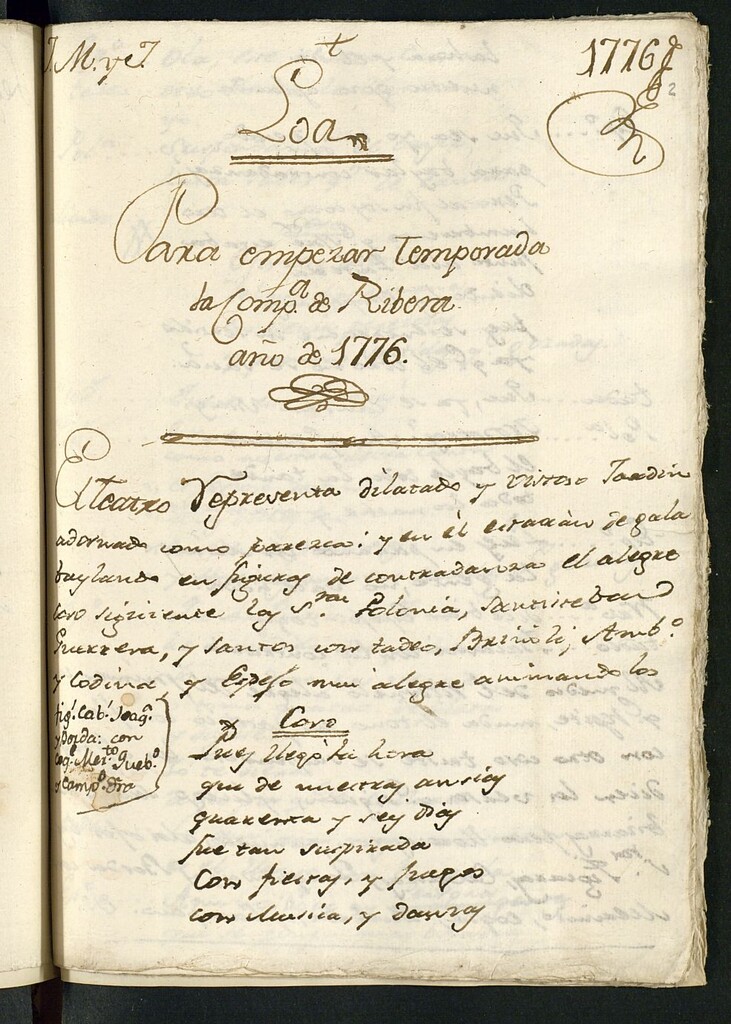 J. M. y J.
1776
2
Loa
Para empezar temporada
la Comp.a de Ribera
año de 1776.
El teatro representa dilatado y vistoso Jardin
adornado como parezca: y en él estarán de gala
baylando en figuras de contradanza el alegre
coro siguiente las S.ras Polonia, Santisteban
Guerrera, y Santos con tadeo, Briñoli, Amb.o
y Codina, y Espejo mui alegre animando los
Coro
Pues llegó la hora
que de nuestras ansias
quarenta y seis dias
fue tan suspirada
Con fiestas, y juegos
con Musica, y danzas